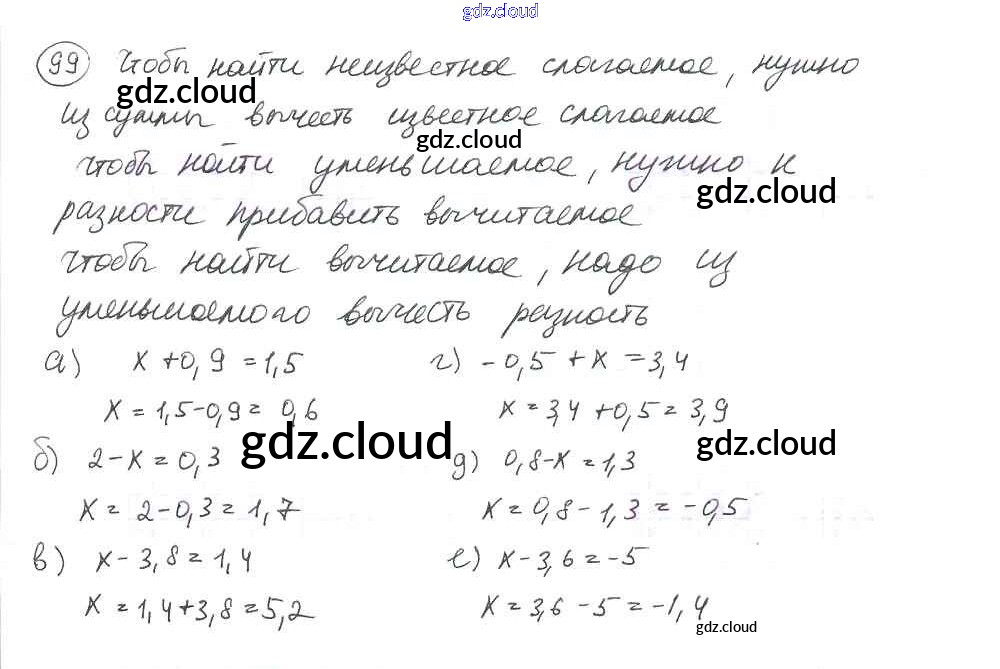 gdz.cloud
99 Чтобы найти неизвестное слагаемое, нужно
gdz.cloud
из суммы вычесть известное слагаемое
gdz.cloud
чтобы найти уменьшаемое, нужно к
gdz.cloud
разности прибавить вычитаемое
чтобы найти вычитаемое, надо из
уменьшаемого вычесть разность
а) x + 0,9 = 1,5
x = 1,5 - 0,9 = 0,6
б) 2 - x = 0,3
x = 2 - 0,3 = 1,7
в) x - 3,8 = 1,4
x = 1,4 + 3,8 = 5,2
gdz.cloud
г) - 0,5 + x = 3,4
x = 3,4 + 0,5 = 3,9
gdz.cloud
д) 0,8 - x = 1,3
x = 0,8 - 1,3 = -0,5
е) x - 3,6 = -5
x = 3,6 - 5 = -1,4
gdz.cloud